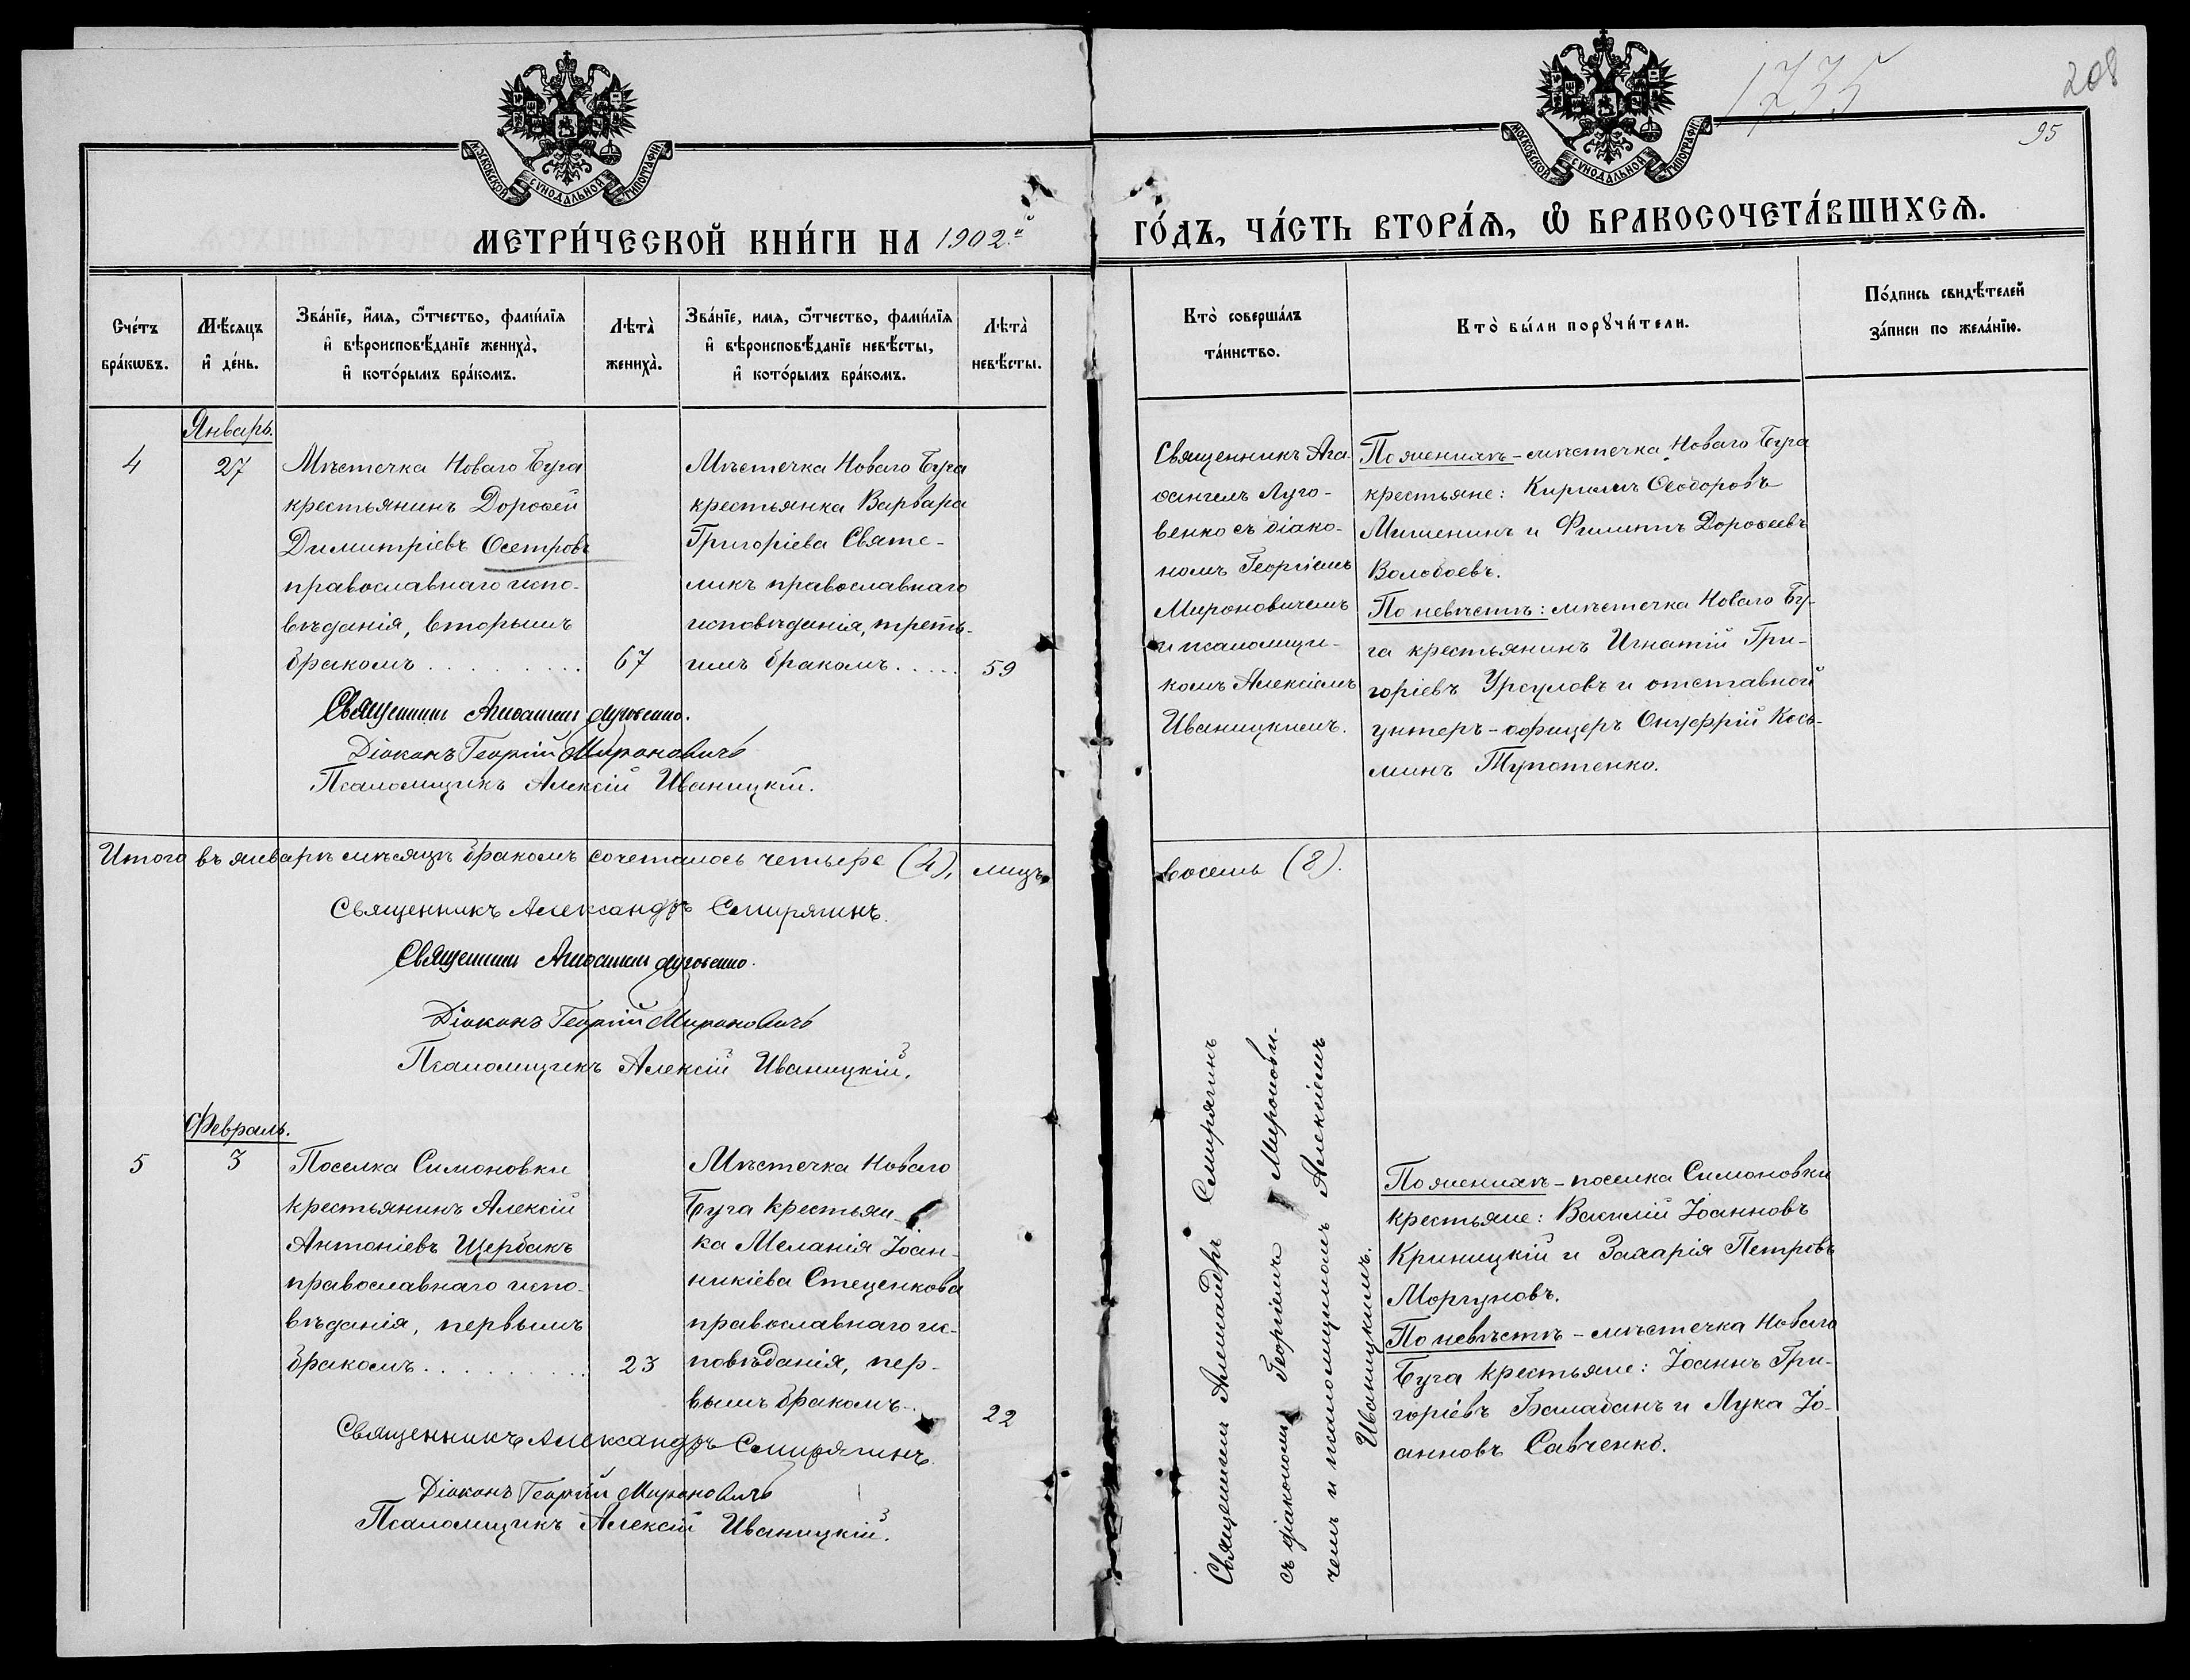 МОСКОВСКОЙ СУНОДАЛЬНОЙ ТИПОГРАФІИ
МОСКОВСКОЙ СУНОДАЛЬНОЙ ТИПОГРАФІИ
1735
208
95
МЕТРИ́ЧЕСКОЙ КНИ́ГИ НА 1902й ГО́ДЪ, ЧА́СТЬ ВТОРА́Я, Ѽ БРАКОСОЧЕТА́ВШИХСЯ.
Сче́тъ бра́кѡвъ.
Мѣ́сяцъ и҆ де́нь.
Зва́нїе, и҆́мя, ѿтчество, фамѝлїя
и҆ вѣроисповѣ́данїе жениха̀,
и҆ кото́рымъ бра́комъ.
Лѣта̀ жениха̀.
Зва́нїе, имя, ѿтчество, фамѝлїя
и҆ вѣроисповѣ́данїе невѣ́сты,
и҆ кото́рымъ бра́комъ.
Лѣта̀ невѣ́сты.
Кто̀ соверша́лъ та́инство.
Кто̀ бы́ли порꙋчи́тели.
По́дпись свидѣ́телей
за́писи по жела́нїю.
Январь.
4
27
Мѣстечка Новаго Буга
крестьянинъ Дороѳей
Димитріевъ Осетровъ
православнаго испо-
вѣданія, вторымъ
бракомъ . . . . . . . . .
67
Мѣстечка Новаго Буга
крестьянка Варвара
Григоріева Святе-
ликъ православнаго
исповѣданія, треть-
имъ бракомъ. . . . .
59
Священникъ Ага-
ѳангелъ Луго-
венко съ діако-
номъ Георгіемъ
Мироновичемъ
и псаломщи-
комъ Алексіемъ
Иваницкимъ.
По женихѣ - мѣстечка Новаго Буга
крестьяне: Кириллъ Ѳеодоровъ
Мишенинъ и Филиппъ Дороѳеевъ
Волобоевъ.
По невѣстѣ: мѣстечка Новаго Бу-
га крестьянинъ Игнатій Гри-
горіевъ Урсуловъ и отставной
унтеръ-офицеръ Онуфрій Кось-
минъ Тупотенко.
Священникъ Агаѳангелъ Луговенко.
Діаконъ Георгій Мироновичъ
Псаломщикъ Алексій Иваницкій.
Итого въ январѣ мѣсяцѣ бракомъ сочеталось четыре (4), лицъ восемь (8).
Священникъ Александръ Смирягинъ.
Священникъ Агаѳангелъ Луговенко.
Діаконъ Георгій Мироновичъ
Псаломщикъ Алексій Иваницкій.
Февраль.
5
3
Поселка Симоновки
крестьянинъ Алексій
Антоніевъ Щербакъ
православнаго испо-
вѣданія, первымъ
бракомъ. . . . . . . . . .
23
Мѣстечка Новаго
Буга крестьян-
ка Меланія Іоан-
никіева Стеценкова
православнаго ис-
повѣданія, пер-
вымъ бракомъ-
22
Священникъ Александръ Смирягинъ
съ діакономъ Георгіемъ Миронови-
чемъ и псаломщикомъ Алексіемъ
Иваницкимъ.
По женихѣ - поселка Симоновки
крестьяне: Василій Іоанновъ
Криницкій и Захарія Петровъ
Моргуновъ.
По невѣстѣ - мѣстечка Новаго
Буга крестьяне: Іоаннъ Гри-
горіевъ Балабанъ и Лука Іо-
анновъ Савченко.
Священникъ Александръ Смирягинъ.
Діаконъ Георгій Мироновичъ
Псаломщикъ Алексій Иваницкій.